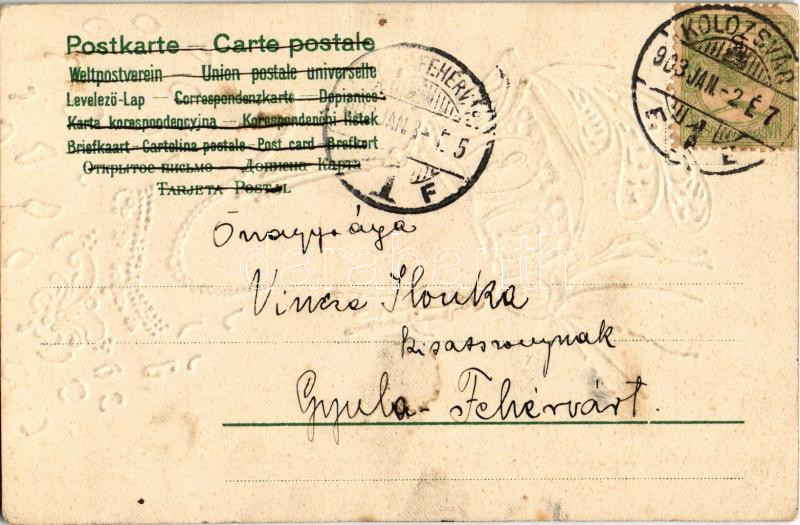 Postkarte — Carte postale
Weltpostverein — Union postale universelle
Levelező-Lap — Correspondenzkarte — Dopisnice
Karta korespondencyjna — Korespondenční lístek
Briefkaart — Cartolina postale — Post card — Brefkort
Открытое письмо — Дописна Карта
Tarjeta Postal
FEHÉRVÁR
JAN. 3 - É. 5
F
KOLOZSVÁR
903 JAN. - 2 É 7
Önagysága
Vincze Ilonka
kisatszonynak
Gyula-Fehérvárt.
darabanth